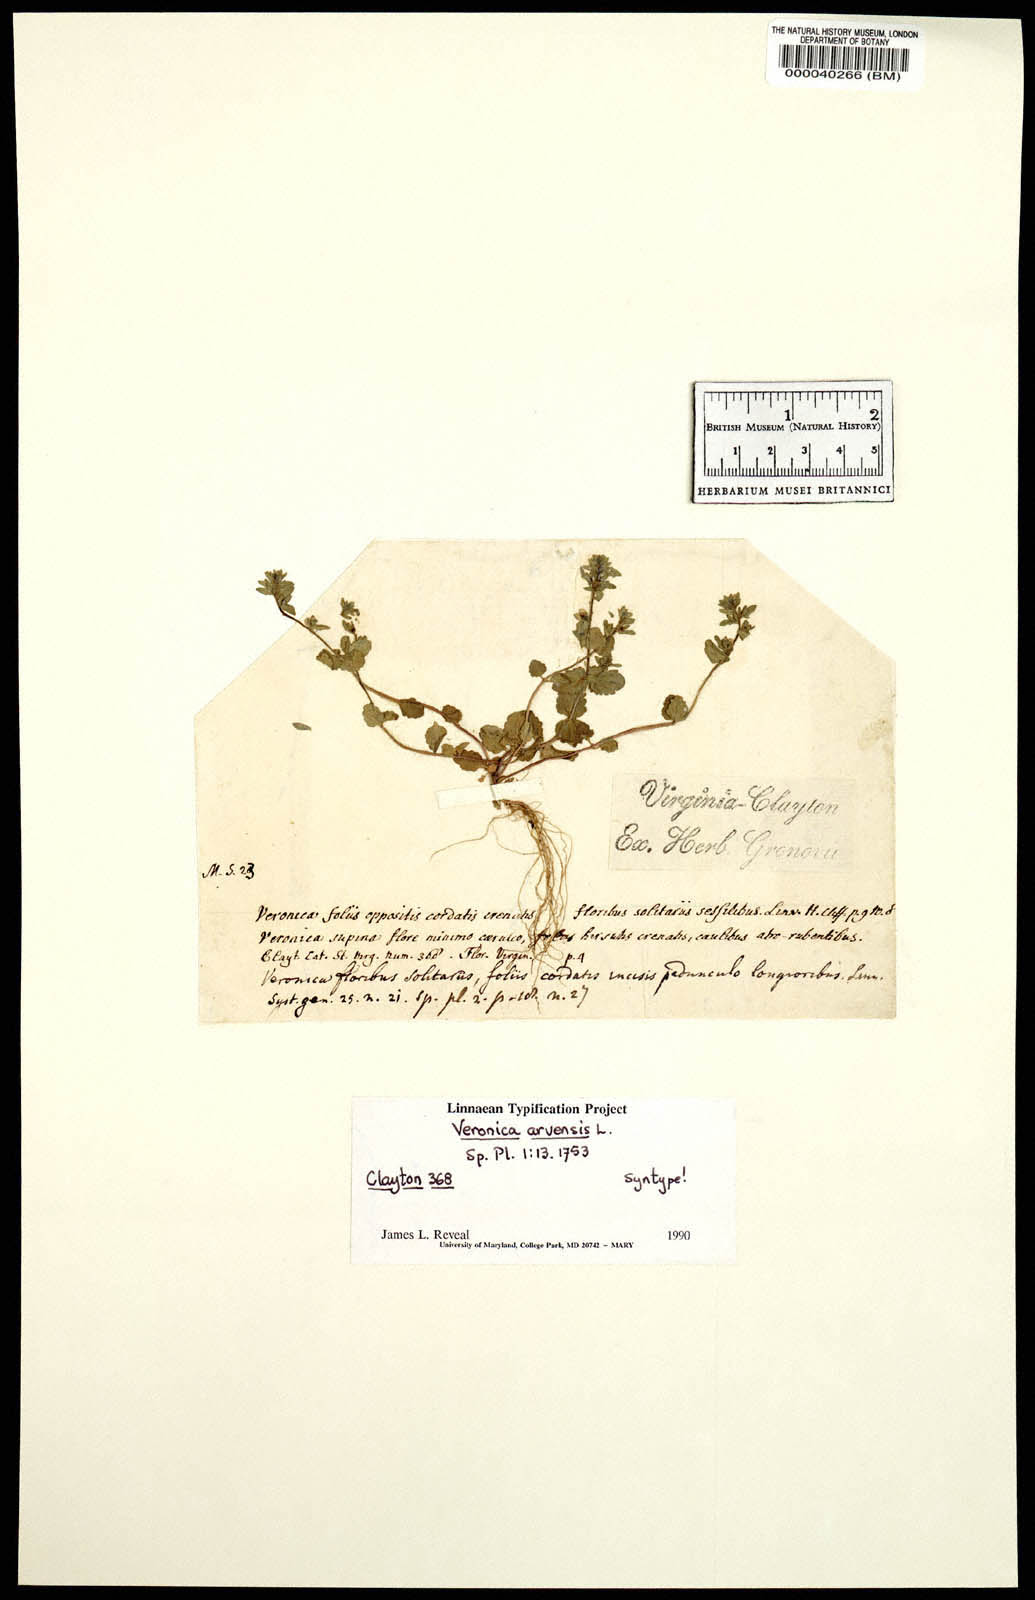 THE NATURAL HISTORY MUSEUM, LONDON
DEPARTMENT OF BOTANY
000040266 (BM)
1 2
BRITISH MUSEUM (NATURAL HISTORY)
1 2 3 4 5
HERBARIUM MUSEI BRITANNICI
Virginia-Clayton
Ex. Herb. Gronovii
M. S. 23
Veronica foliis oppositis cordatis crenatis floribus solitariis sessilibus. Linn. H. Cliff. p. 9
Veronica supina flore minimo cœruleo, foliis hirsutis crenatis, caulibus atro-rubentibus.
Clayt. Cat. St. Virg. num. 368. Flor. Virgin. p. 4
Veronica floribus solitariis, foliis cordatis incisis pedunculo longioribus. Linn.
Syst. gen. 25. n. 21. Sp. pl. 2. n. 27
Linnaean Typification Project
Veronica arvensis L.
Sp. Pl. 1:13. 1753
Clayton 368 Syntype!
James L. Reveal 1990
University of Maryland, College Park, MD 20742 – MARY